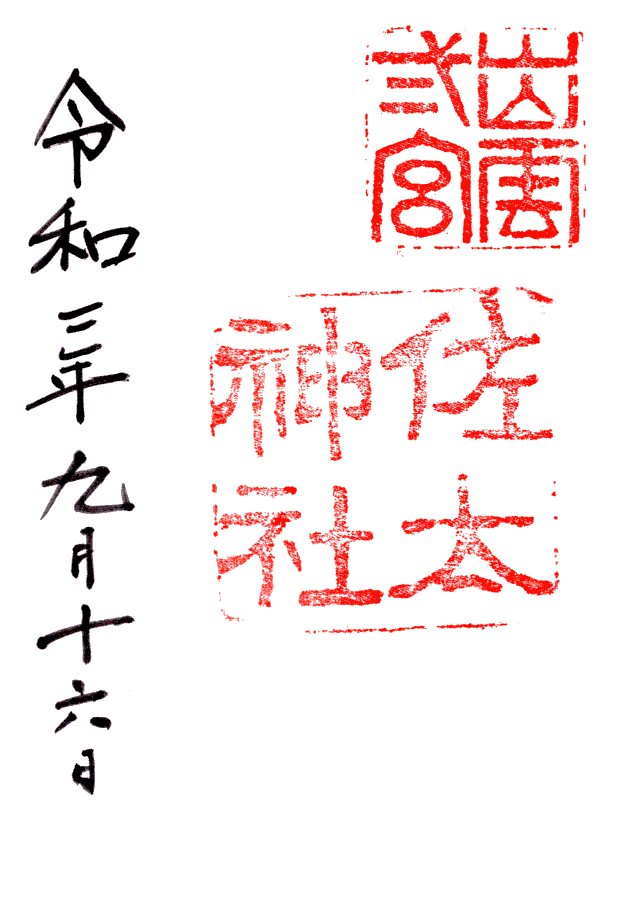 出雲
弍宮
佐太
神社
令和三年九月十六日